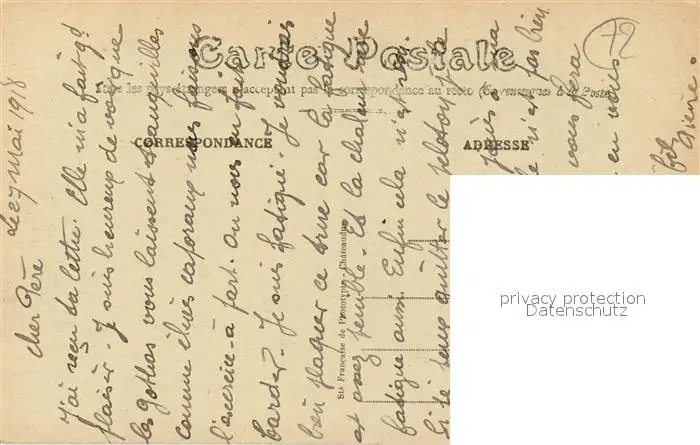 Carte Postale
Tous les pays étrangers n'acceptent pas la correspondance au recto (Renseignez à la Poste)
CORRESPONDANCE
ADRESSE
Sté Française de Phototypie - Châteaudun
Le 27 Mai 1918
cher Père
J'ai reçu ta lettre. Elle m'a fait gd
plaisir. Je suis heureux de voir que
les gothas vous laissent tranquilles
comme élèves caporaux nous faisons
l'exercice à fort. On nous en fait
barder. Je suis fatigué. Je voudrais
bien plaquer ce truc car la fatigue
est assez pénible. Et la chaleur
fatigue aussi. Enfin cela n'est rien
Si je peux quitter le peloton je
n'est pas bien
vous fera
en vous
privacy protection
Datenschutz